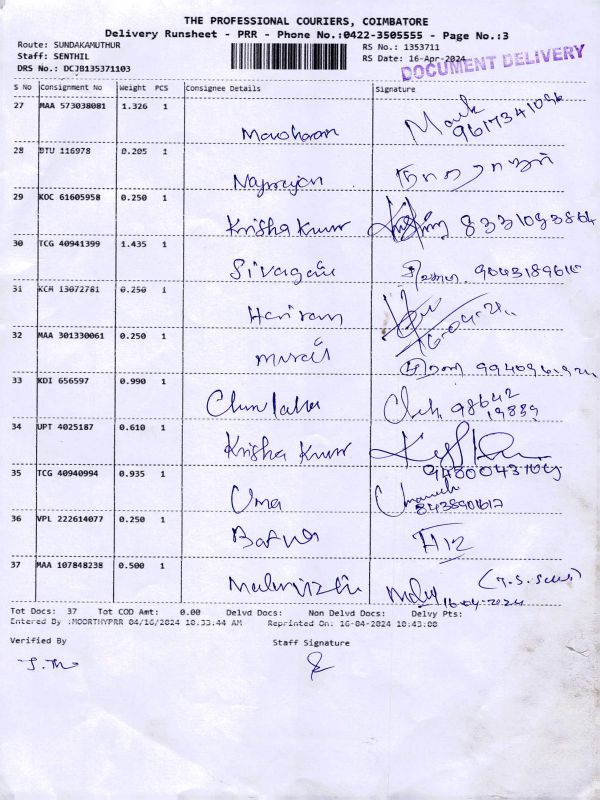 THE PROFESSIONAL COURIERS, COIMBATORE
Delivery Runsheet - PRR - Phone No.:0422-3505555 - Page No.:3
Route: SUNDAKAMUTHUR RS No.: 1353711
Staff: SENTHIL RS Date: 16-Apr-2024
DRS No.: DCJB135371103
DOCUMENT DELIVERY
S No Consignment No Weight PCS Consignee Details Signature
27 MAA 573038081 1.326 1
Manoharan
28 BTU 116978 0.205 1
Nagarajan நாகராஜன்
29 KOC 61605958 0.250 1
Krisha Kumar
30 TCG 40941399 1.435 1
Sivagami
31 KCM 13072781 0.250 1
Hariram 16-04-24
32 MAA 301330061 0.250 1
Murali
33 KDI 656597 0.990 1
98642
19839
34 UPT 4025187 0.610 1
Krisha Kumar
35 TCG 40940994 0.935 1
Uma
36 VPL 222614077 0.250 1
H12
37 MAA 107848238 0.500 1
16-04-2024
Tot Docs: 37 Tot COD Amt: 0.00 Delvd Docs: Non Delvd Docs: Delvy Pts:
Entered By :MOORTHYPRR 04/16/2024 10:33:44 AM Reprinted On: 16-04-2024 10:43:00
Verified By Staff Signature